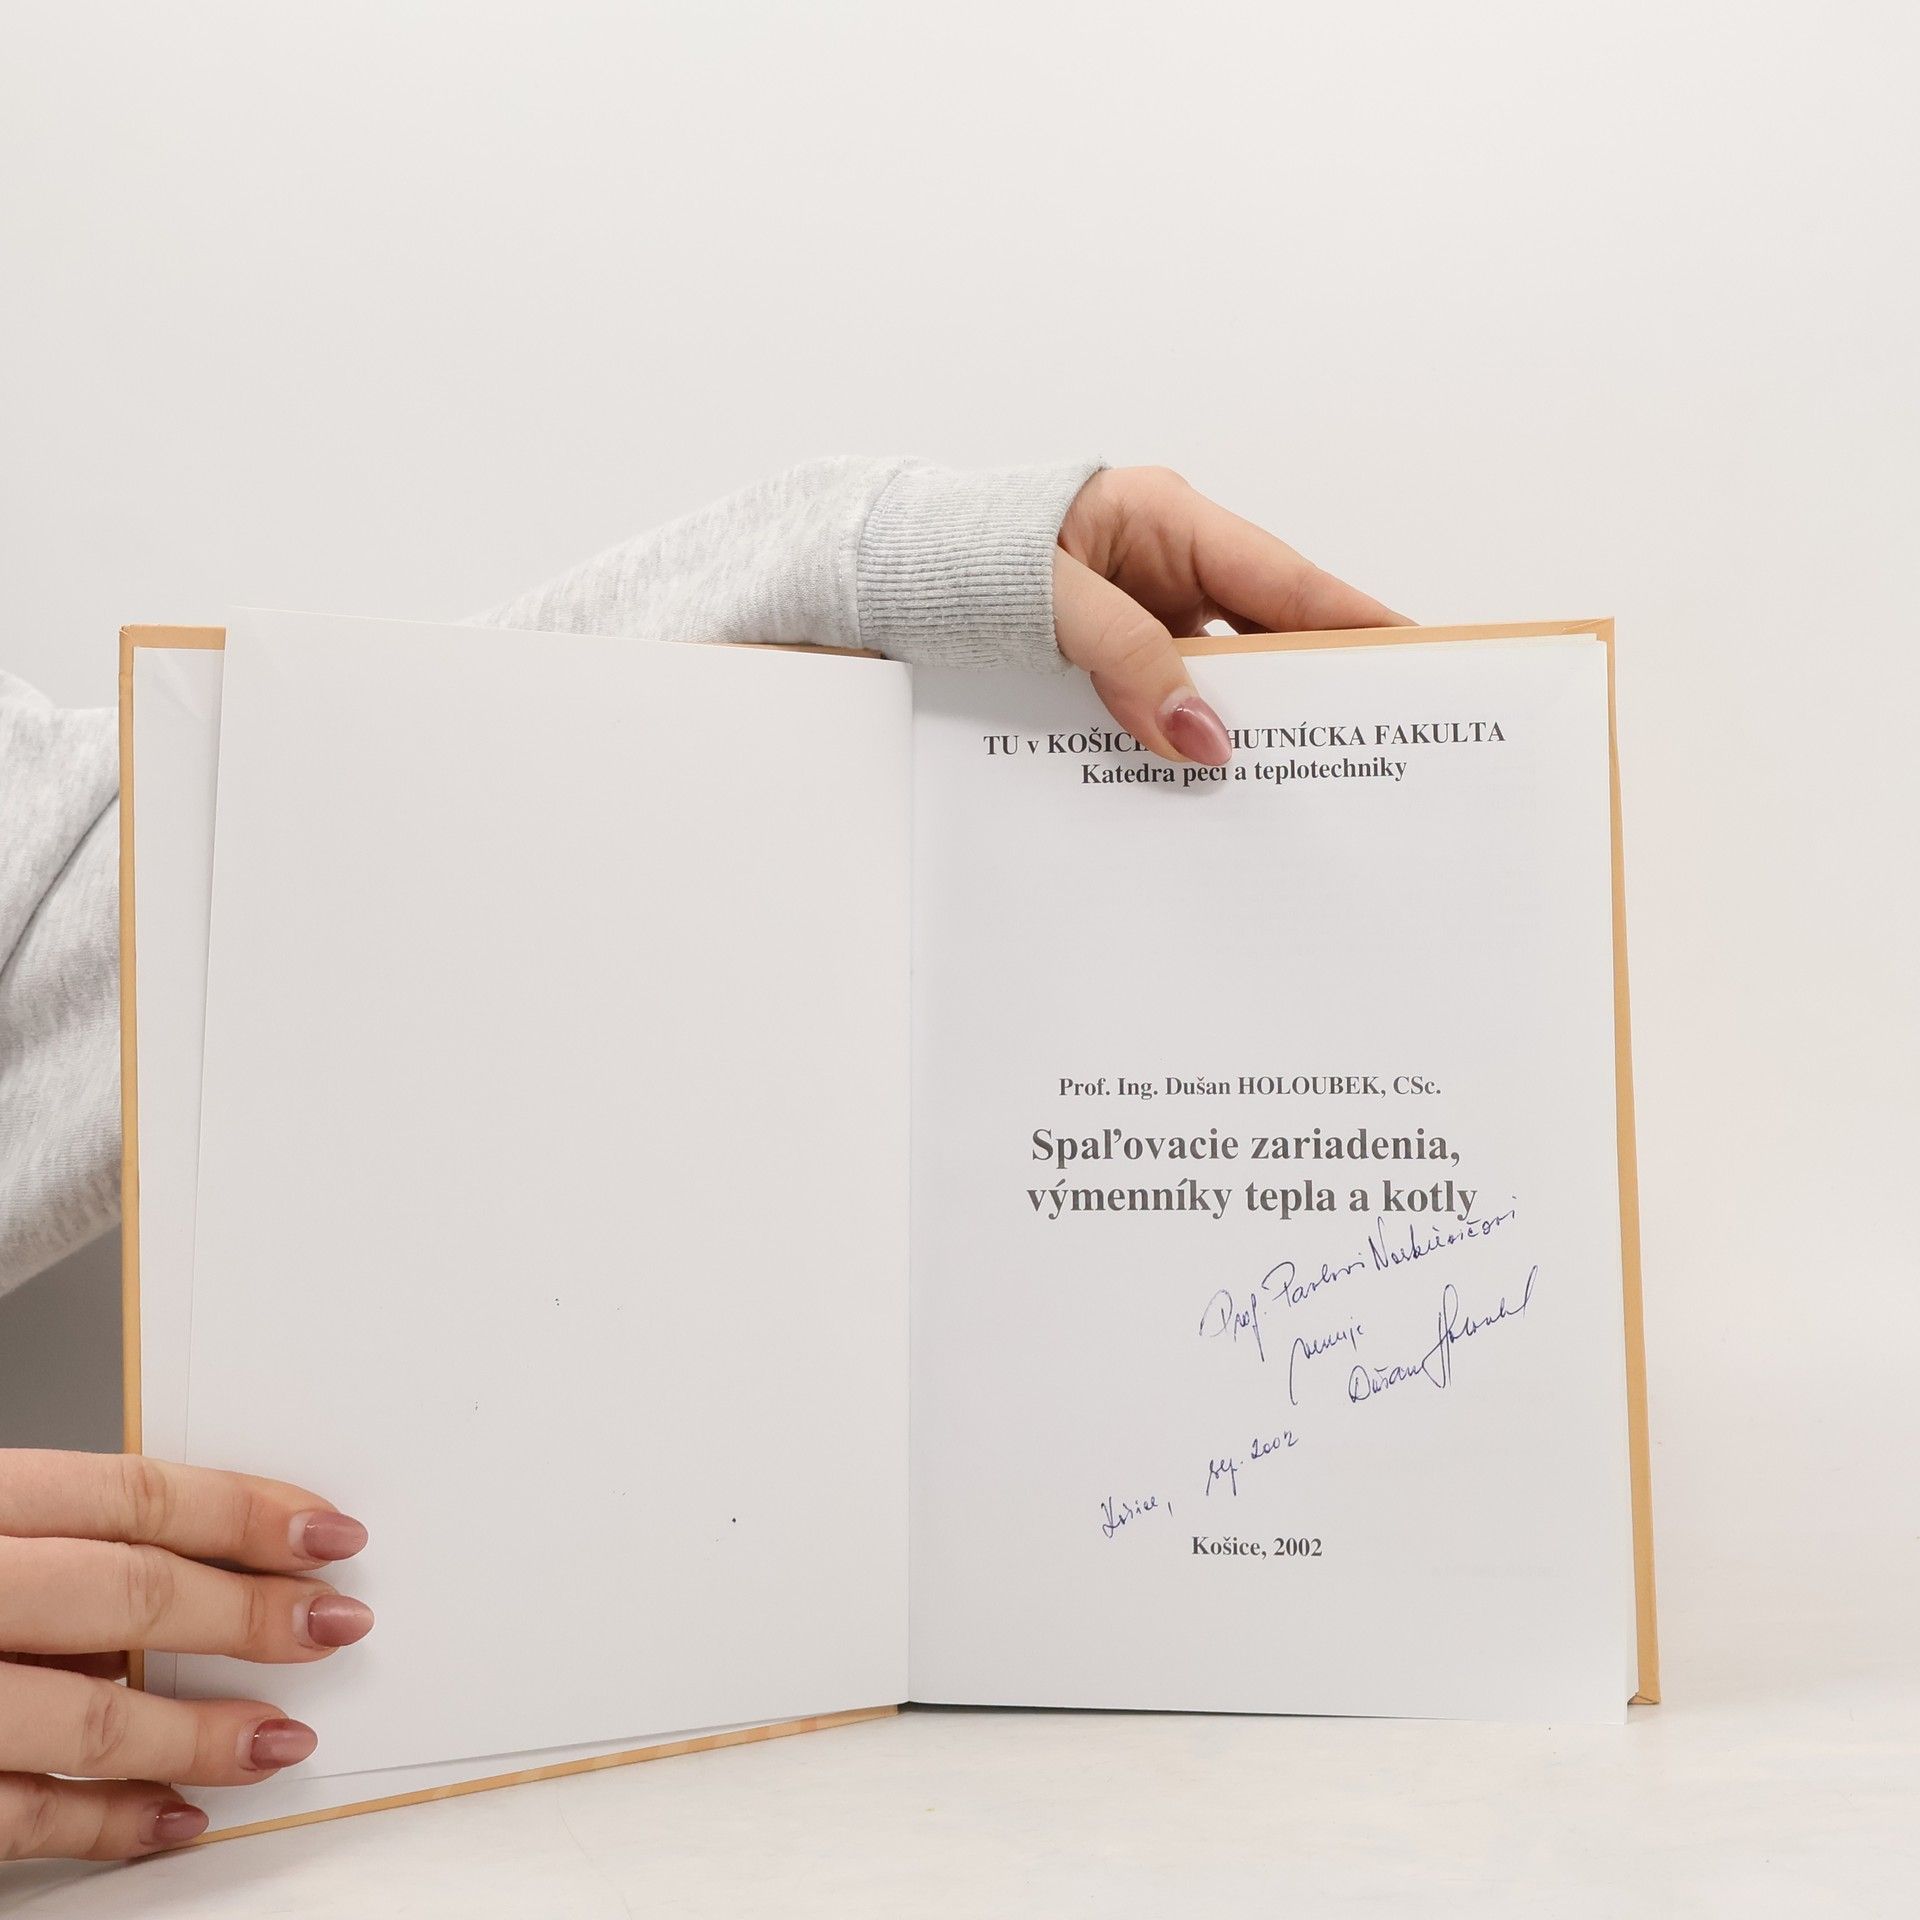 TU v KOŠIC HUTNÍCKA FAKULTA
Katedra pecí a teplotechniky
Prof. Ing. Dušan HOLOUBEK, CSc.
Spaľovacie zariadenia,
výmenníky tepla a kotly
Prof. Pavlovi
venuje
Dušan Holoubek
Košice, sep. 2002
Košice, 2002